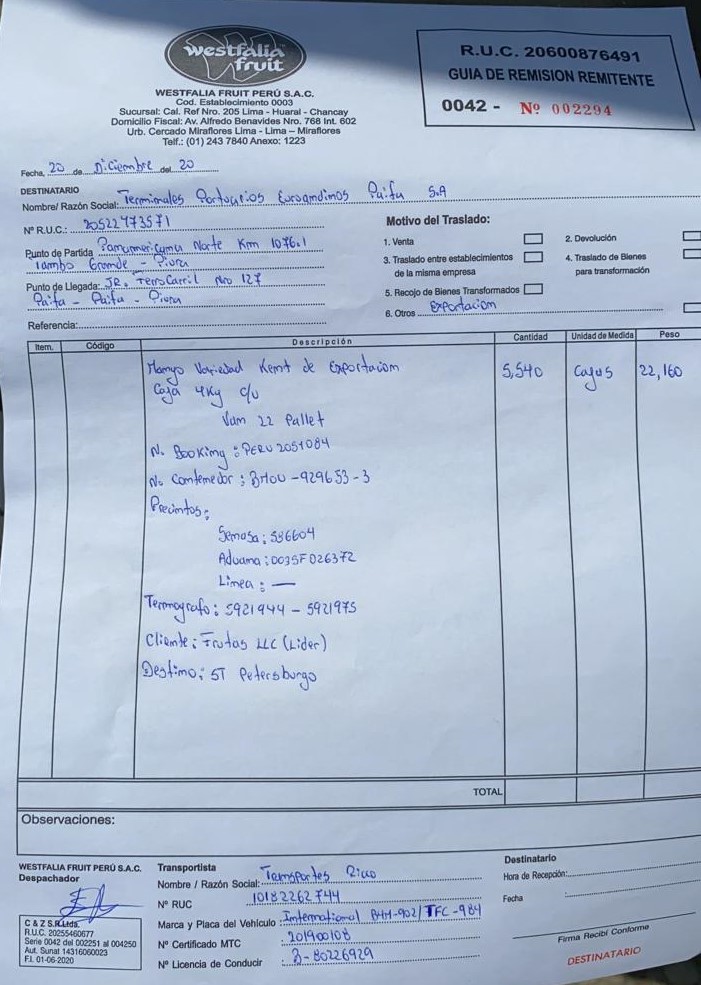 westfalia
fruit
WESTFALIA FRUIT PERÚ S.A.C.
Cod. Establecimiento 0003
Sucursal: Cal. Ref Nro. 205 Lima - Huaral - Chancay
Domicilio Fiscal: Av. Alfredo Benavides Nro. 768 Int. 602
Urb. Cercado Miraflores Lima - Lima – Miraflores
Telf.: (01) 243 7840 Anexo: 1223
R.U.C. 20600876491
GUIA DE REMISION REMITENTE
0042 - Nº 002294
Fecha, 20 de Diciembre del 20
DESTINATARIO
Nombre/ Razón Social: Terminales Portuarios Euroandinos Paita S.A
Nº R.U.C.: 20522473571
Punto de Partida Panamericana Norte Km 1076.1
Tambo Grande - Piura
Punto de Llegada: JR. FerroCarril Nro 127
Paita - Paita - Piura
Referencia:
Motivo del Traslado:
1. Venta
2. Devolución
3. Traslado entre establecimientos
de la misma empresa
4. Traslado de Bienes
para transformación
5. Recojo de Bienes Transformados
6. Otros Exportacion
Item. Código Descripción Cantidad Unidad de Medida Peso
Mango Variedad Kent de Exportacion 5,540 Cajas 22,160
Caja 4Kg c/u
Van 22 Pallet
N. Booking: PERU 2051084
No Contenedor: BHOU-929653-3
Precintos:
Senasa: 586604
Aduana: 0035F026372
Linea: —
Termografo: 5921944 - 5921975
Cliente: Frutas LLC (Lider)
Destino: ST Petersburgo
TOTAL
Observaciones:
WESTFALIA FRUIT PERÚ S.A.C.
Despachador
C & Z S.R.Ltda.
R.U.C. 20255460677
Serie 0042 del 002251 al 004250
Aut. Sunat 14316060023
F.I. 01-06-2020
Transportista
Nombre / Razón Social: Transportes Ricco
Nº RUC 10182262744
Marca y Placa del Vehículo : International BHH-902/TFC-984
Nº Certificado MTC : 201900108
Nº Licencia de Conducir : B-80226929
Destinatario
Hora de Recepción:
Fecha :
Firma Recibí Conforme
DESTINATARIO